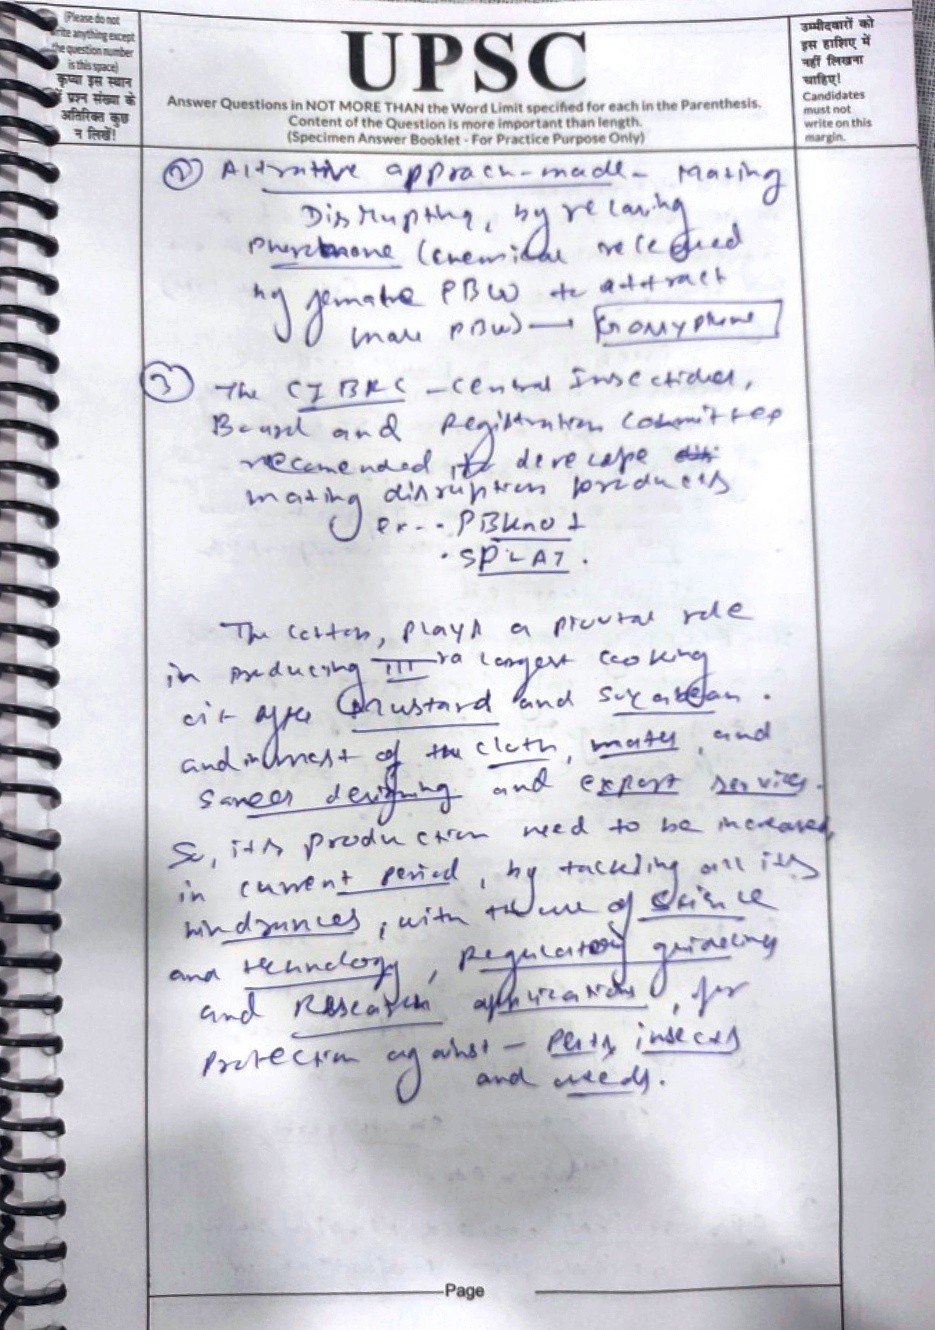 (Please do not
write anything except
the question number
is this space)
कृप्या इस स्थान
में प्रश्न संख्या के
अतिरिक्त कुछ
न लिखें!
UPSC
Answer Questions in NOT MORE THAN the Word Limit specified for each in the Parenthesis.
Content of the Question is more important than length.
(Specimen Answer Booklet - For Practice Purpose Only)
उम्मीदवारों को
इस हाशिए में
नहीं लिखना
चाहिए!
Candidates
must not
write on this
margin.
② approach-made - Mating
Disrupting, by
(chemical
by PBW to attract
male PBW) →
③ The CIBRC - Central Insecticides,
Board and Registration Committee
recomended to
mating disruption products
ex - · PBKnot
· SPLAT.
The cotton, plays a pivotal role
in producing IIIrd largest cooking
oil after mustard and
of the cloth, and
designing and export services.
So, its production need to be increased
in current period, by tackling all its
hindrances, with the use of Science
and technology, Regulatory guidelines
and Research applications, for
Protection against - Pests, insects
and weeds.
Page